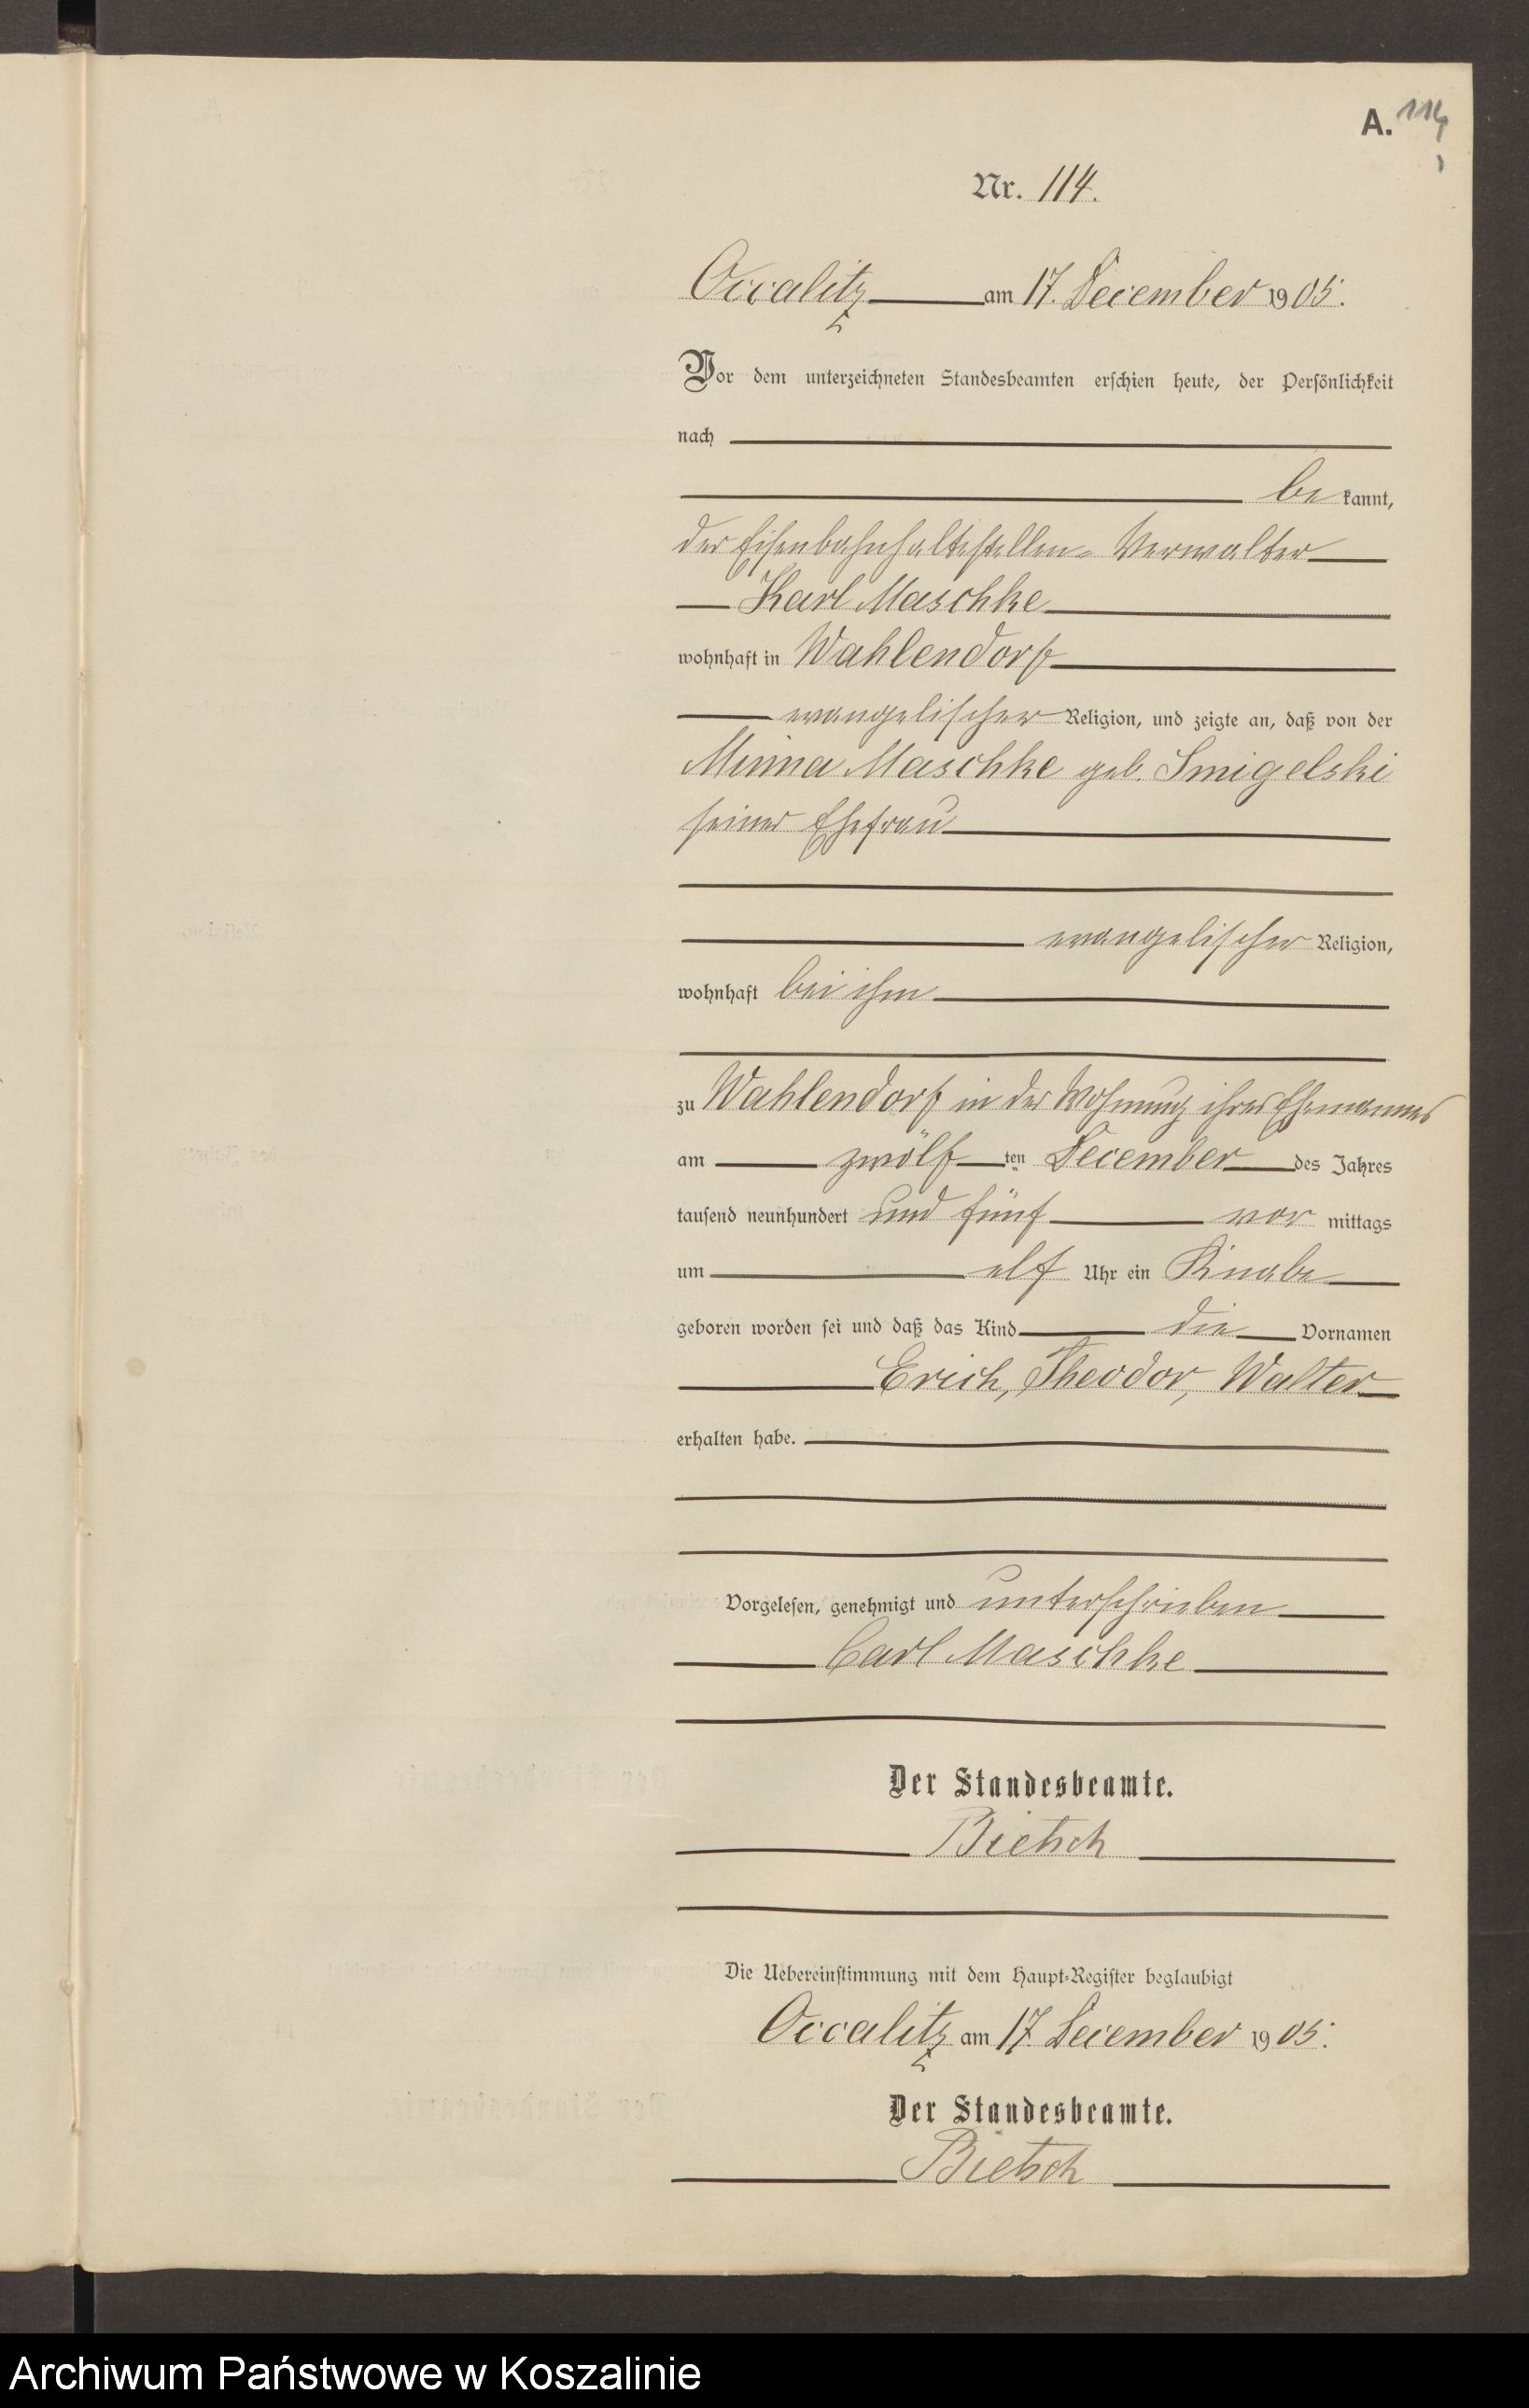 A. 114
Nr. 114.
Occalitz am 17. December 1905.
Vor dem unterzeichneten Standesbeamten erschien heute, der Persönlichkeit
nach
be kannt,
der Eisenbahnhaltestellen-Verwalter
Karl Maschke
wohnhaft in Wahlendorf
evangelischer Religion, und zeigte an, daß von der
Minna Maschke geb. Smigelski
seiner Ehefrau
evangelischer Religion,
wohnhaft bei ihm
zu Wahlendorf in der Wohnung ihres Ehemannes
am zwölf ten December des Jahres
tausend neunhundert und fünf vor mittags
um elf Uhr ein Knabe
geboren worden sei und daß das Kind die Vornamen
Erich, Theodor, Walter
erhalten habe.
Vorgelesen, genehmigt und unterschrieben
Carl Maschke
Der Standesbeamte.
Bietsch
Die Uebereinstimmung mit dem Haupt-Register beglaubigt
Occalitz am 17. December 1905.
Der Standesbeamte.
Bietsch
Archiwum Państwowe w Koszalinie